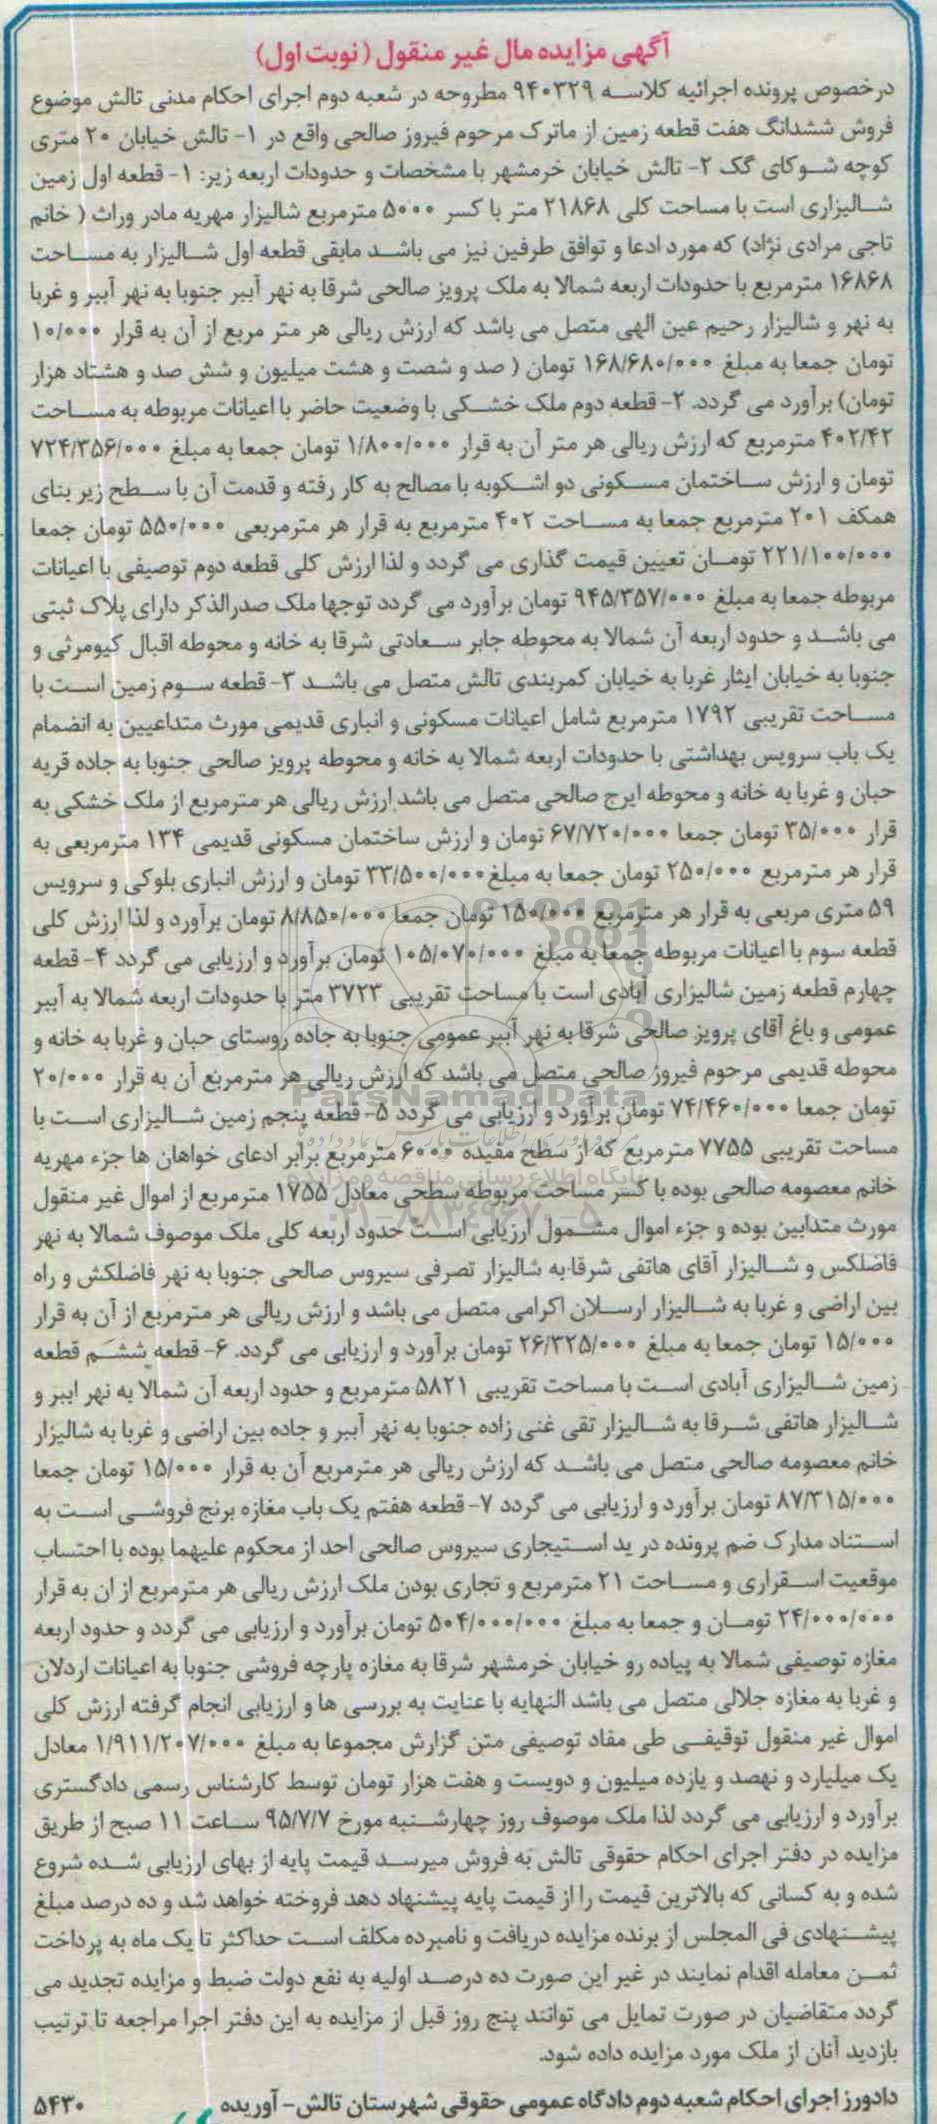 آگهی مزایده مال غیر منقول (نوبت اول)
درخصوص پرونده اجرائیه کلاسه ۹۴۰۳۲۹ مطروحه در شعبه دوم اجرای احکام مدنی تالش موضوع
فروش ششدانگ هفت قطعه زمین از ماترک مرحوم فیروز صالحی واقع در ۱- تالش خیابان ۲۰ متری
کوچه شوکای گک ۲- تالش خیابان خرمشهر با مشخصات و حدودات اربعه زیر: ۱- قطعه اول زمین
شالیزاری است با مساحت کلی ۲۱۸۶۸ متر با کسر ۵۰۰۰ مترمربع شالیزار مهریه مادر وراث ( خانم
تاجی مرادی نژاد) که مورد ادعا و توافق طرفین نیز می باشد مابقی قطعه اول شالیزار به مساحت
۱۶۸۶۸ مترمربع با حدودات اربعه شمالا به ملک پرویز صالحی شرقا به نهر آببر جنوبا به نهر آببر و غربا
به نهر و شالیزار رحیم عین الهی متصل می باشد که ارزش ریالی هر متر مربع از آن به قرار ۱۰/۰۰۰
تومان جمعا به مبلغ ۱۶۸/۶۸۰/۰۰۰ تومان ( صد و شصت و هشت میلیون و شش صد و هشتاد هزار
تومان) برآورد می گردد. ۲- قطعه دوم ملک خشکی با وضعیت حاضر با اعیانات مربوطه به مساحت
۴۰۲/۴۲ مترمربع که ارزش ریالی هر متر آن به قرار ۱/۸۰۰/۰۰۰ تومان جمعا به مبلغ ۷۲۴/۳۵۶/۰۰۰
تومان و ارزش ساختمان مسکونی دو اشکوبه با مصالح به کار رفته و قدمت آن با سطح زیر بنای
همکف ۲۰۱ مترمربع جمعا به مساحت ۴۰۲ مترمربع به قرار هر مترمربعی ۵۵۰/۰۰۰ تومان جمعا
۲۲۱/۱۰۰/۰۰۰ تومان تعیین قیمت گذاری می گردد و لذا ارزش کلی قطعه دوم توصیفی با اعیانات
مربوطه جمعا به مبلغ ۹۴۵/۳۵۷/۰۰۰ تومان برآورد می گردد توجها ملک صدرالذکر دارای پلاک ثبتی
می باشد و حدود اربعه آن شمالا به محوطه جابر سعادتی شرقا به خانه و محوطه اقبال کیومرثی و
جنوبا به خیابان ایثار غربا به خیابان کمربندی تالش متصل می باشد ۳- قطعه سوم زمین است با
مساحت تقریبی ۱۷۹۲ مترمربع شامل اعیانات مسکونی و انباری قدیمی مورث متداعیین به انضمام
یک باب سرویس بهداشتی با حدودات اربعه شمالا به خانه و محوطه پرویز صالحی جنوبا به جاده قریه
حبان و غربا به خانه و محوطه ایرج صالحی متصل می باشد ارزش ریالی هر مترمربع از ملک خشکی به
قرار ۳۵/۰۰۰ تومان جمعا ۶۷/۷۲۰/۰۰۰ تومان و ارزش ساختمان مسکونی قدیمی ۱۳۴ مترمربعی به
قرار هر مترمربع ۲۵۰/۰۰۰ تومان جمعا به مبلغ ۳۳/۵۰۰/۰۰۰ تومان و ارزش انباری بلوکی و سرویس
۵۹ متری مربعی به قرار هر مترمربع ۱۵۰/۰۰۰ تومان جمعا ۸/۸۵۰/۰۰۰ تومان برآورد و لذا ارزش کلی
قطعه سوم با اعیانات مربوطه جمعا به مبلغ ۱۰۵/۰۷۰/۰۰۰ تومان برآورد و ارزیابی می گردد ۴- قطعه
چهارم قطعه زمین شالیزاری آبادی است با مساحت تقریبی ۳۷۲۳ متر با حدودات اربعه شمالا به آببر
عمومی و باغ آقای پرویز صالحی شرقا به نهر آببر عمومی جنوبا به جاده روستای حبان و غربا به خانه و
محوطه قدیمی مرحوم فیروز صالحی متصل می باشد که ارزش ریالی هر مترمربع آن به قرار ۲۰/۰۰۰
تومان جمعا ۷۴/۴۶۰/۰۰۰ تومان برآورد و ارزیابی می گردد ۵- قطعه پنجم زمین شالیزاری است با
مساحت تقریبی ۷۷۵۵ مترمربع که از سطح مفیده ۶۰۰۰ مترمربع برابر ادعای خواهان ها جزء مهریه
خانم معصومه صالحی بوده با کسر مساحت مربوطه سطحی معادل ۱۷۵۵ مترمربع از اموال غیر منقول
مورث متدابین بوده و جزء اموال مشمول ارزیابی است حدود اربعه کلی ملک موصوف شمالا به نهر
فاضلکس و شالیزار آقای هاتفی شرقا به شالیزار تصرفی سیروس صالحی جنوبا به نهر فاضلکش و راه
بین اراضی و غربا به شالیزار ارسلان اکرامی متصل می باشد و ارزش ریالی هر مترمربع از آن به قرار
۱۵/۰۰۰ تومان جمعا به مبلغ ۲۶/۳۲۵/۰۰۰ تومان برآورد و ارزیابی می گردد. ۶- قطعه ششم قطعه
زمین شالیزاری آبادی است با مساحت تقریبی ۵۸۲۱ مترمربع و حدود اربعه آن شمالا به نهر اببر و
شالیزار هاتفی شرقا به شالیزار تقی غنی زاده جنوبا به نهر آببر و جاده بین اراضی و غربا به شالیزار
خانم معصومه صالحی متصل می باشد که ارزش ریالی هر مترمربع آن به قرار ۱۵/۰۰۰ تومان جمعا
۸۷/۳۱۵/۰۰۰ تومان برآورد و ارزیابی می گردد ۷- قطعه هفتم یک باب مغازه برنج فروشی است به
استناد مدارک ضم پرونده در ید استیجاری سیروس صالحی احد از محکوم علیهما بوده با احتساب
موقعیت استقراری و مساحت ۲۱ مترمربع و تجاری بودن ملک ارزش ریالی هر مترمربع از ان به قرار
۲۴/۰۰۰/۰۰۰ تومان و جمعا به مبلغ ۵۰۴/۰۰۰/۰۰۰ تومان برآورد و ارزیابی می گردد و حدود اربعه
مغازه توصیفی شمالا به پیاده رو خیابان خرمشهر شرقا به مغازه پارچه فروشی جنوبا به اعیانات اردلان
و غربا به مغازه جلالی متصل می باشد النهایه با عنایت به بررسی ها و ارزیابی انجام گرفته ارزش کلی
اموال غیر منقول توقیفی طی مفاد توصیفی متن گزارش مجموعا به مبلغ ۱/۹۱۱/۲۰۷/۰۰۰ معادل
یک میلیارد و نهصد و یازده میلیون و دویست و هفت هزار تومان توسط کارشناس رسمی دادگستری
برآورد و ارزیابی می گردد لذا ملک موصوف روز چهارشنبه مورخ ۹۵/۷/۷ ساعت ۱۱ صبح از طریق
مزایده در دفتر اجرای احکام حقوقی تالش به فروش میرسد قیمت پایه از بهای ارزیابی شده شروع
شده و به کسانی که بالاترین قیمت را از قیمت پایه پیشنهاد دهد فروخته خواهد شد و ده درصد مبلغ
پیشنهادی فی المجلس از برنده مزایده دریافت و نامبرده مکلف است حداکثر تا یک ماه به پرداخت
ثمن معامله اقدام نمایند در غیر این صورت ده درصد اولیه به نفع دولت ضبط و مزایده تجدید می
گردد متقاضیان در صورت تمایل می توانند پنج روز قبل از مزایده به این دفتر اجرا مراجعه تا ترتیب
بازدید آنان از ملک مورد مزایده داده شود.
دادورز اجرای احکام شعبه دوم دادگاه عمومی حقوقی شهرستان تالش- آوریده ۵۴۳۰
ParsNamadData
پایگاه اطلاع رسانی مناقصه و مزایده
۰۲۱-۸۸۳۴۹۶۷۰-۵